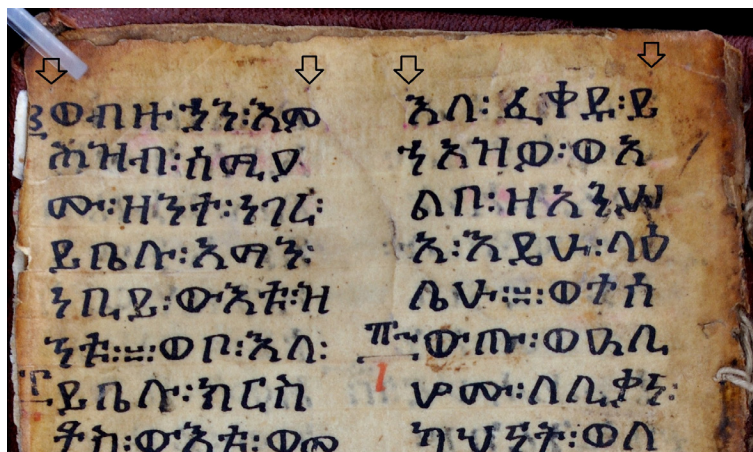 ወብዙኃን፡እም
ሕዝብ፡ሰሚዖ
ሙ፡ዘንተ፡ነገረ፡
ይቤሉ፡አማን፡
ነቢይ፡ውእቱ፡ዝ
ንቱ፡፡ወቦ፡እለ፡
ይቤሉ፡ክርስ
ቶስ፡ውእቱ፡ወመ
እለ፡ፈቀዱ፡ይ
ኅአዝዎ፡ወአ
ልቦ፡ዘአንሥ
አ፡እዴሁ፡ላዕ
ሌሁ፡፡ወተሰ
ውጡ፡ወዓሊ
ሆሙ፡ለሊቃነ፡
ካህናት፡ወለ